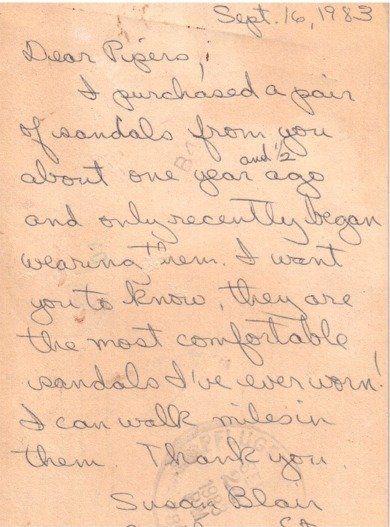 Sept. 16, 1983
Dear Pipers,
I purchased a pair
of sandals from you
about one year and ½ ago
and only recently began
wearing them. I want
you to know, they are
the most comfortable
sandals I've ever worn!
I can walk miles in
them. Thank you.
Susan Blair
CA